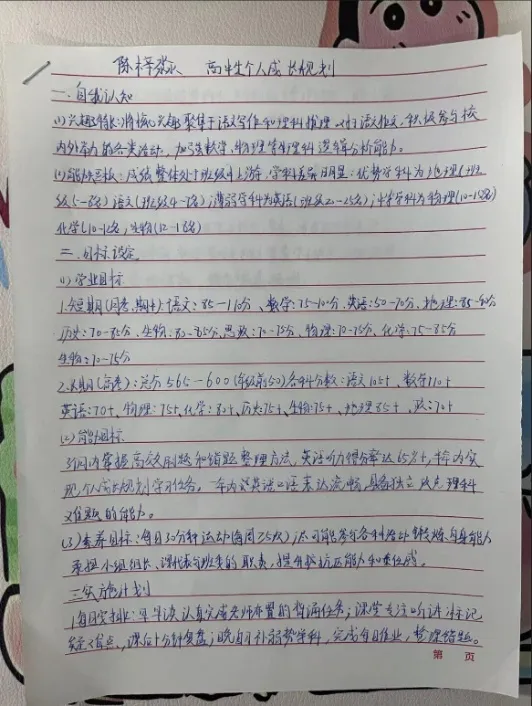 陈梓淼 高中生个人成长规划
一.自我认知
(1)兴趣特长:将核心兴趣聚焦于语文写作和理科推理,对于语文作文,积极参与校
内外学力的各类活动,加强数学、物理等有理科逻辑分析能力。
(2)能力定位:成绩整体处于班级中上游,学科差异明显:优势学科为地理(班
级1-8名)语文(班级4-7名);薄弱学科为英语(班级20-25名);中等学科为物理(10-15名)
化学(10-12名,生物(12-18名)
二.目标设定
(1)学业目标
1.短期(月考、期中):语文:85-110分、数学:75-100分、英语:50-70分、地理:85-90分
历史:70-85分、生物:80-85分、思政:70-75分、物理:70-75分、化学:75-85分
生物:70-75分
2.长期(高考):总分565-600(年级前50)各科分数:语文105+ 数学110+
英语:70+、物理:75+、化学:80+、历史75+、生物:75+、地理85+、政:70+
(2)能力目标
3月内掌握高效刷题和错题整理方法,英语听力得分率达65%+,半年内实
现个人成长规划学习任务,一年内达英语口语表达流畅,具备独立攻克理科
难题的能力。
(3)素养目标:每日30分钟运动(每周≥5次);尽可能参与各种活动锻炼自身能力
承担小组组长、课代表等班委的职责,提升抗压能力和责任感。
三.实施计划
1.每日安排:早午读认真完成老师布置的背诵任务;课堂专注听讲,标记
疑难点,课后十分钟复盘;晚自习补弱势学科,完成每日作业,整理错题。
第 页